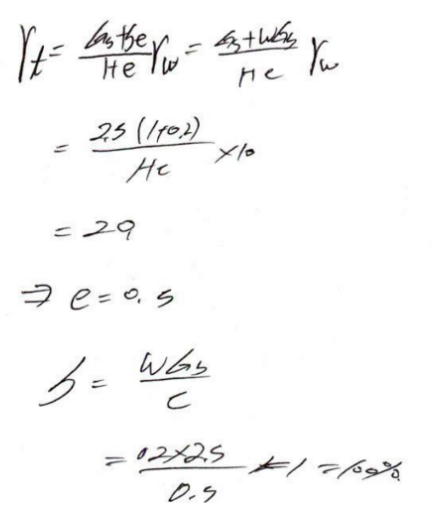 γt = (Gs+Se)/(1+e) γw = (Gs+WGs)/(1+e) γw
= 2.5(1+0.2)/(1+e) ×10
= 20
⇒ e = 0.5
S = WGs/e
= 0.2×2.5/0.5 = 1 = 100%